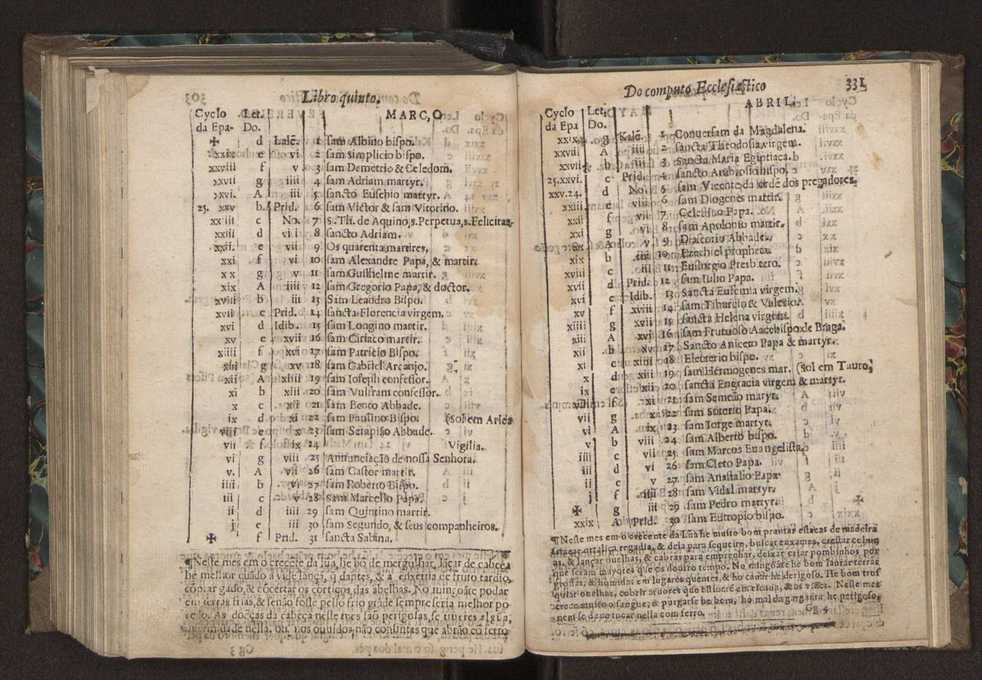 Libro quinto.
Cyclo da Epa- Let. Do. MARÇO
✠ d Kalẽ. 1 sam Albino bispo.
xxix e vi 2 sam simplicio bispo.
xxviii f v 3 sam Demetrio & Celedom.
xxvii g iiii 4 sam Adriam martyr.
xxvi. A iii 5 sancto Eusebio martyr.
25. xxv b Prid. 6 sam Victor & sam Vitorino.
xxiiii c No. 7 s. Th. de Aquino, s. Perpetua, s. Felicitas
xxiii d viii 8 sancto Adriam.
xxii. e vii 9 Os quarenta martires,
xxi f vi 10 sam Alexandre Papa, & martir.
xx g v 11 sam Guilhelme martir.
xix A iiii 12 sam Gregorio Papa, & doctor.
xviii b iii 13 Sam Leandro Bispo.
xvii c Prid. 14 sancta Florencia virgem.
xvi d Idib. 15 sam Longino martir.
xv e xvii 16 sam Ciriaco martir.
xiiii f xvi 17 sam Patricio Bispo.
xiii g xv 18 sam Gabriel Arcanjo.
xii A xiiii 19 sam Ioseph confessor.
xi b xiii 20 sam Vulfram confessor.
x c xii 21 sam Bento Abbade.
ix d xi 22 sam Paulino Bispo. (Sol em Aries
viii e x 23 sam Serapião Abbade.
vii f ix 24 Vigilia.
vi g viii 25 Annunciação de nossa Senhora.
v. A vii 26 sam Castor martir.
iiii b vi 27 sam Roberto Bispo.
iii c v 28 sam Marcello Papa.
ii d iiii 29 sam Quintino martir.
j e iii 30 sam Segundo, & seus companheiros.
✠ f Prid. 31 sancta Sabina.
¶Neste mes em o crecẽte da lua, he bõ de mergulhar, lãçar de cabeça
he melhor quãdo a vide lança, q̃ dantes, & a enxertia de fruto tardio,
comprar gado, & cõcertar os cortiços das abelhas. No mingoãte podar
em terras frias, & senão fosse pello frio grãde sempre seria melhor po-
As doẽças da cabeça neste mes são perigosas, se tiveres algũa,
nos ouvidos, não consintas que abrão cõ ferro
Do computo Ecclesiastico 331
Cyclo da Epa Let. Do. ABRIL
xxix g Kalẽ. 1 Conversam da Magdalena.
xxviii A iiii 2 sancta Theodosia virgem.
xxvii b iii 3 sancta Maria Egiptiaca.
25.xxvi. c Prid. 4 sancto Ambrosio bispo.
xxv.24. d No. 5 sam Vicente da ordẽ dos pregadores.
xxiii e viii 6 sam Diogenes martir.
xxii f vii 7 Celestino Papa.
xxi g vi 8 sam Apolonio martir.
xx A v 9 Abbade.
xix b iiii 10 Ezechiel propheta.
xviii c iii 11 Eustorgio Presbitero.
xvii d Prid. 12 sam Iulio Papa.
xvi e Idib. 13 Sancta Eufemia virgem.
xv f xviii 14 sam Tiburcio & Valerio.
xiiii g xvii 15 sancta Helena virgem.
xiii A xvi 16 sam Frutuoso Arcebispo de Braga.
xii b xv 17 Sancto Aniceto Papa & martyr.
xi c xiiii 18 Eleuterio bispo.
x d xiii 19 sam Hermogenes mar. (Sol em Tauro,
ix e xii 20 sancta Engracia virgem & martyr.
viii f xi 21 sam Semeão martyr.
vii g x 22 sam Soterio Papa.
vi A ix 23 sam Iorge martyr.
v b viii 24 sam Alberto bispo.
iiii c vii 25 sam Marcos Euangelista.
iii d vi 26 sam Cleto Papa.
ii e v 27 sam Anastasio Papa
j f iiii 28 sam Vidal martyr.
✠ g iii 29 sam Pedro martyr.
xxix A Prid. 30 sam Eutropio bispo.
¶Neste mes em o crecente da Lua he muito bom prantar estacas de madeira
regadia, & dela para sequeiro, buscar enxames, crestar colmeas,
& lançar ovelhas, & cabras para emprenhar, deixar criar pombinhos, por
que seram mayores que es doutro tempo. No mingoãte he bom laurar terras
grossas, & humidas em lugares quentes, & no cauar he perigoso. He bom tros
quiar ovelhas, cobrir
o sangue, & purgarse he bem, ho mal da garganta he perigoso,
nem se deue tocar nella com ferro.
Gg 4